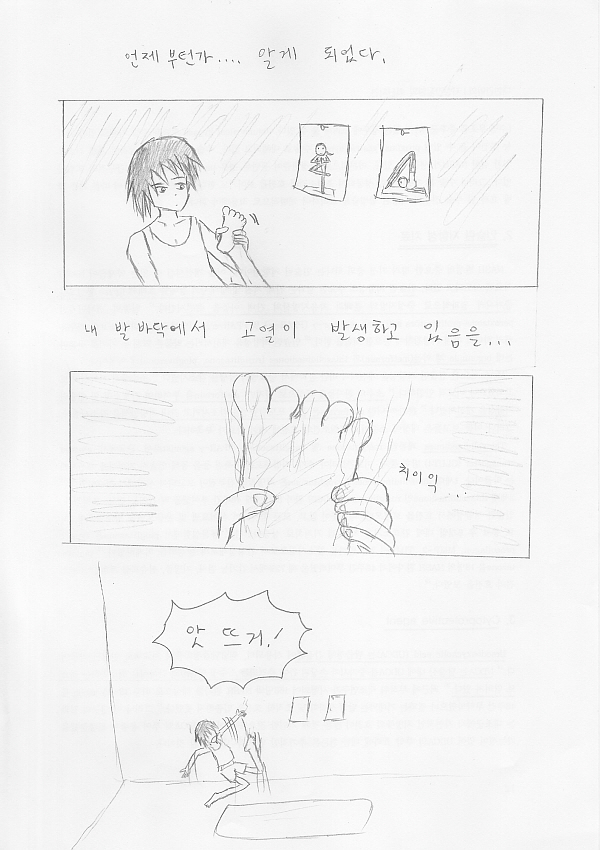 언제부턴가.... 알게 되었다.
내 발바닥에서 고열이 발생하고 있음을...
치이익...
앗 뜨거!